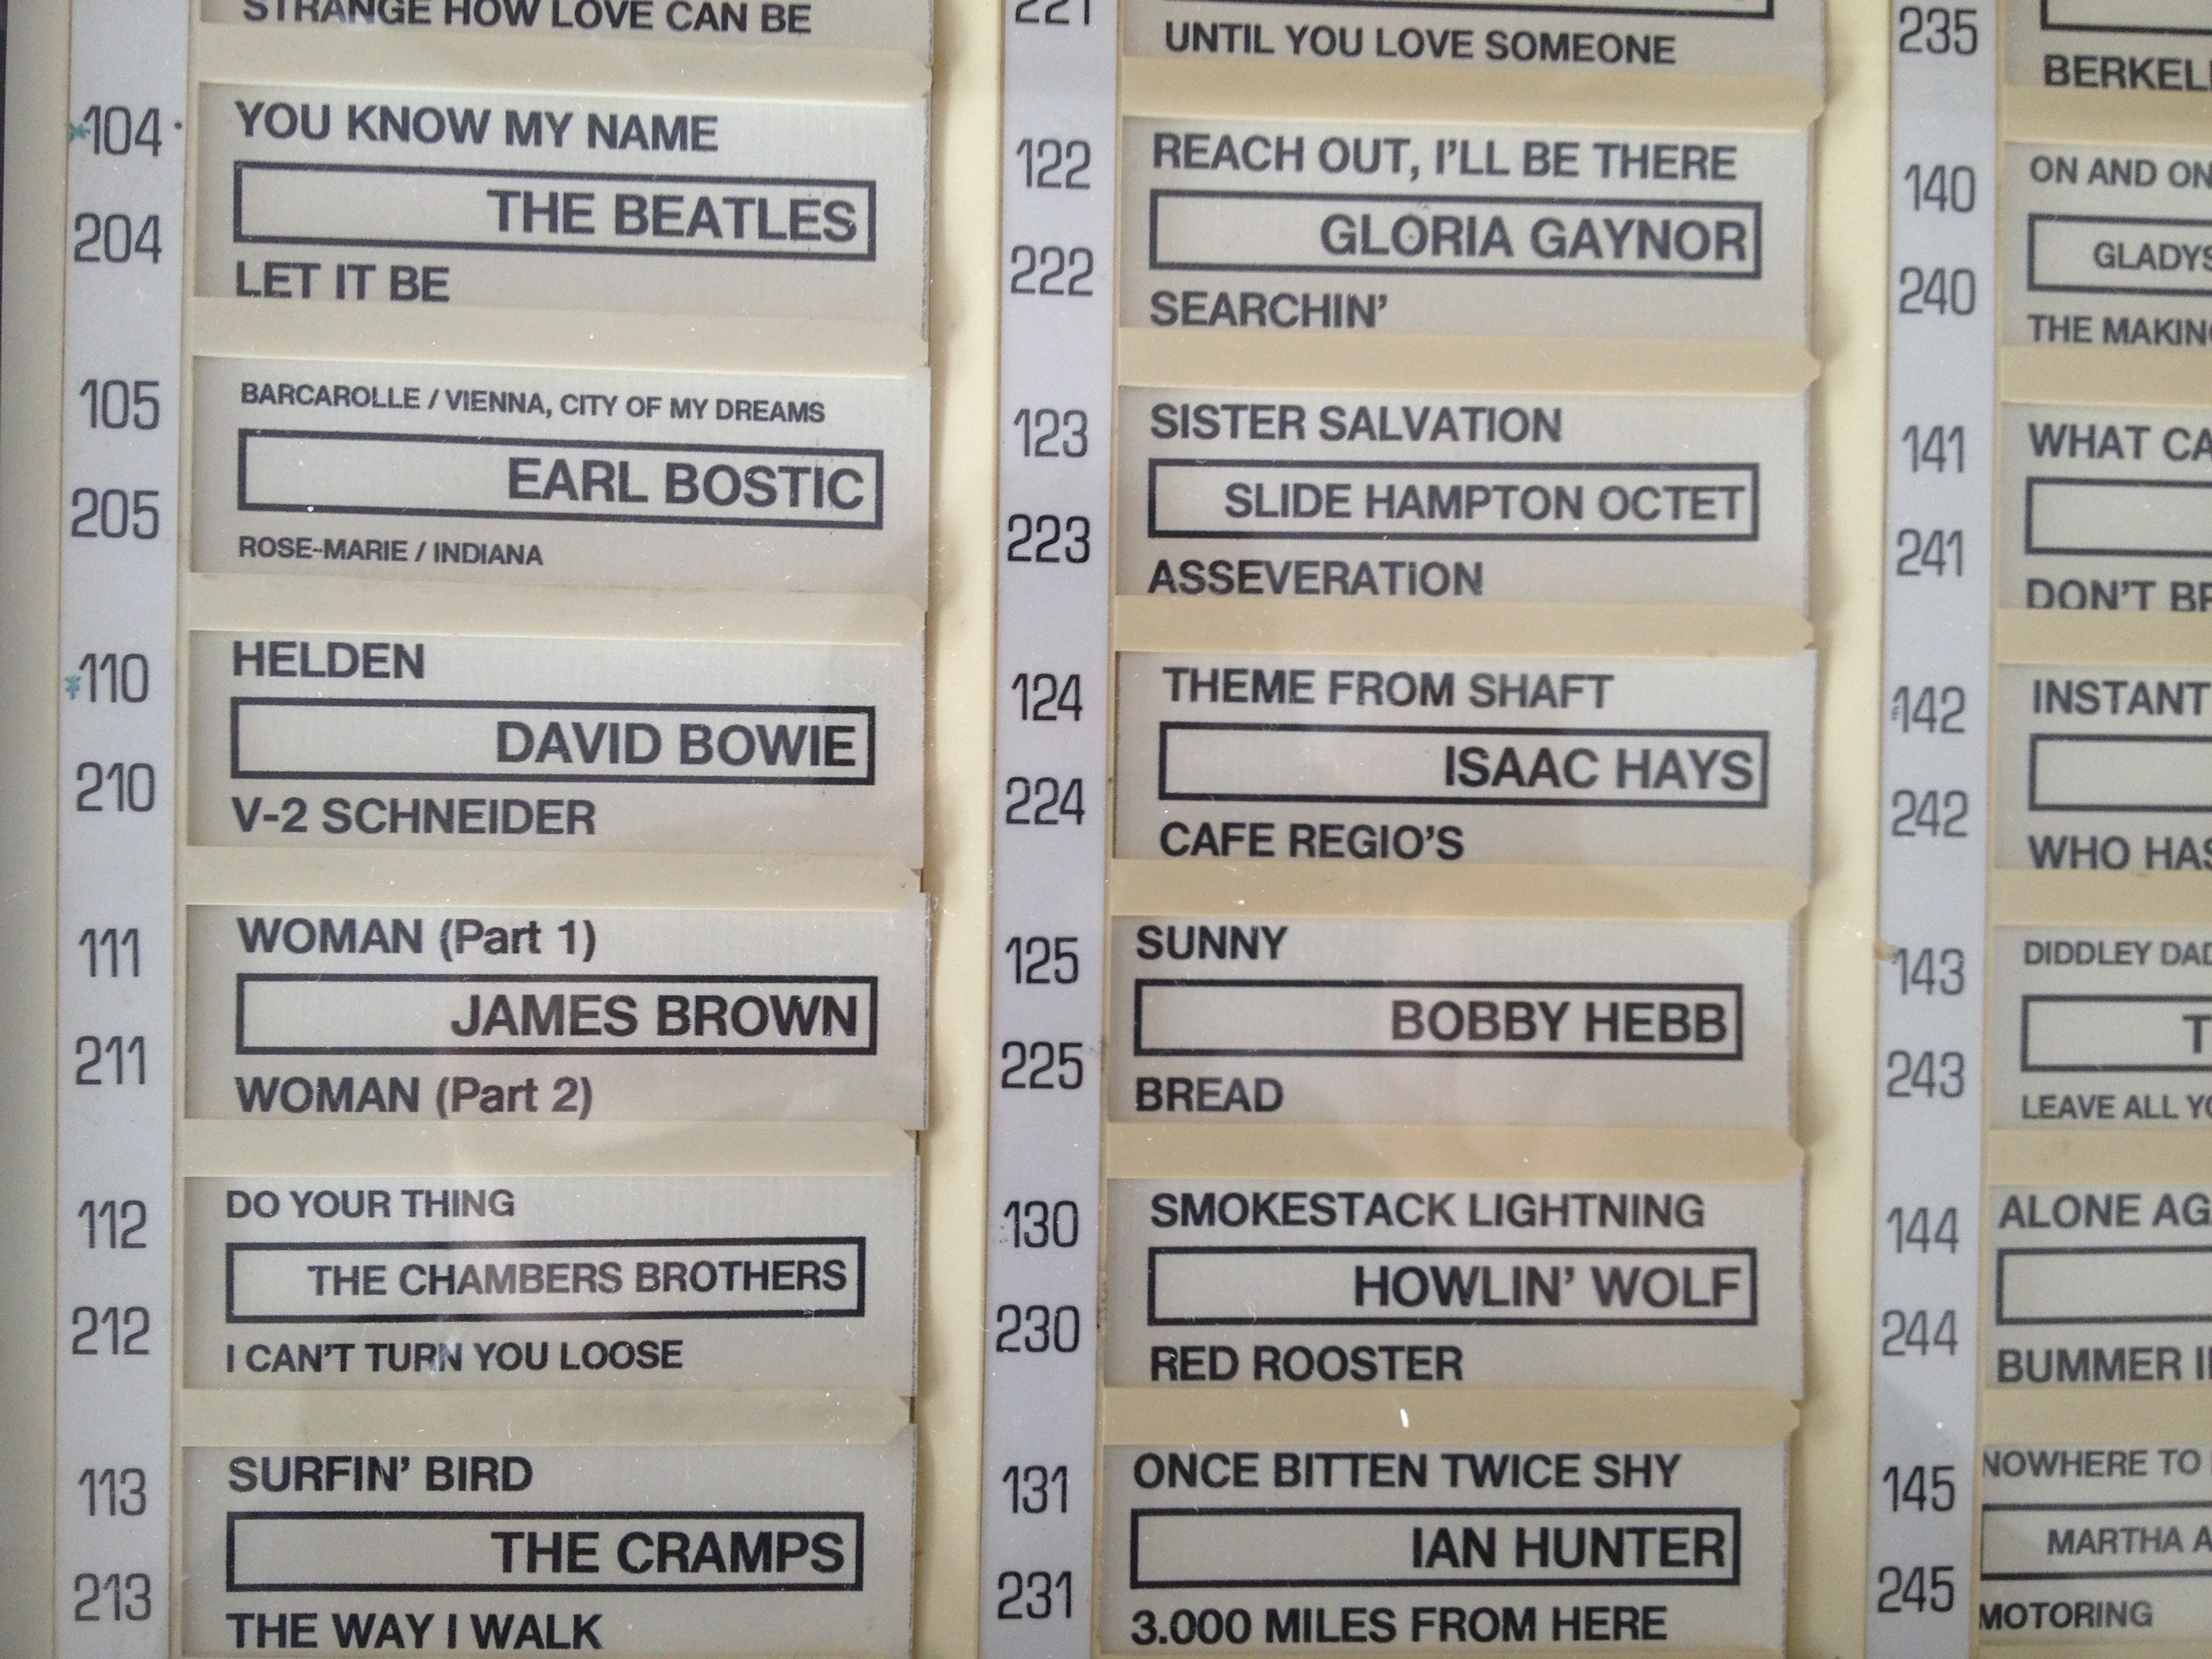 STRANGE HOW LOVE CAN BE
104
YOU KNOW MY NAME
THE BEATLES
204
LET IT BE
105
BARCAROLLE / VIENNA, CITY OF MY DREAMS
EARL BOSTIC
205
ROSE-MARIE / INDIANA
110
HELDEN
DAVID BOWIE
210
V-2 SCHNEIDER
111
WOMAN (Part 1)
JAMES BROWN
211
WOMAN (Part 2)
112
DO YOUR THING
THE CHAMBERS BROTHERS
212
I CAN'T TURN YOU LOOSE
113
SURFIN' BIRD
THE CRAMPS
213
THE WAY I WALK
221
UNTIL YOU LOVE SOMEONE
122
REACH OUT, I'LL BE THERE
GLORIA GAYNOR
222
SEARCHIN'
123
SISTER SALVATION
SLIDE HAMPTON OCTET
223
ASSEVERATION
124
THEME FROM SHAFT
ISAAC HAYS
224
CAFE REGIO'S
125
SUNNY
BOBBY HEBB
225
BREAD
130
SMOKESTACK LIGHTNING
HOWLIN' WOLF
230
RED ROOSTER
131
ONCE BITTEN TWICE SHY
IAN HUNTER
231
3.000 MILES FROM HERE
235
BERKEL
140
ON AND ON
GLADYS
240
THE MAKIN
141
WHAT CA
241
DON'T BR
142
INSTANT
242
WHO HAS
143
DIDDLEY DAD
T
243
LEAVE ALL YO
144
ALONE AG
244
BUMMER I
145
NOWHERE TO
MARTHA A
245
MOTORING